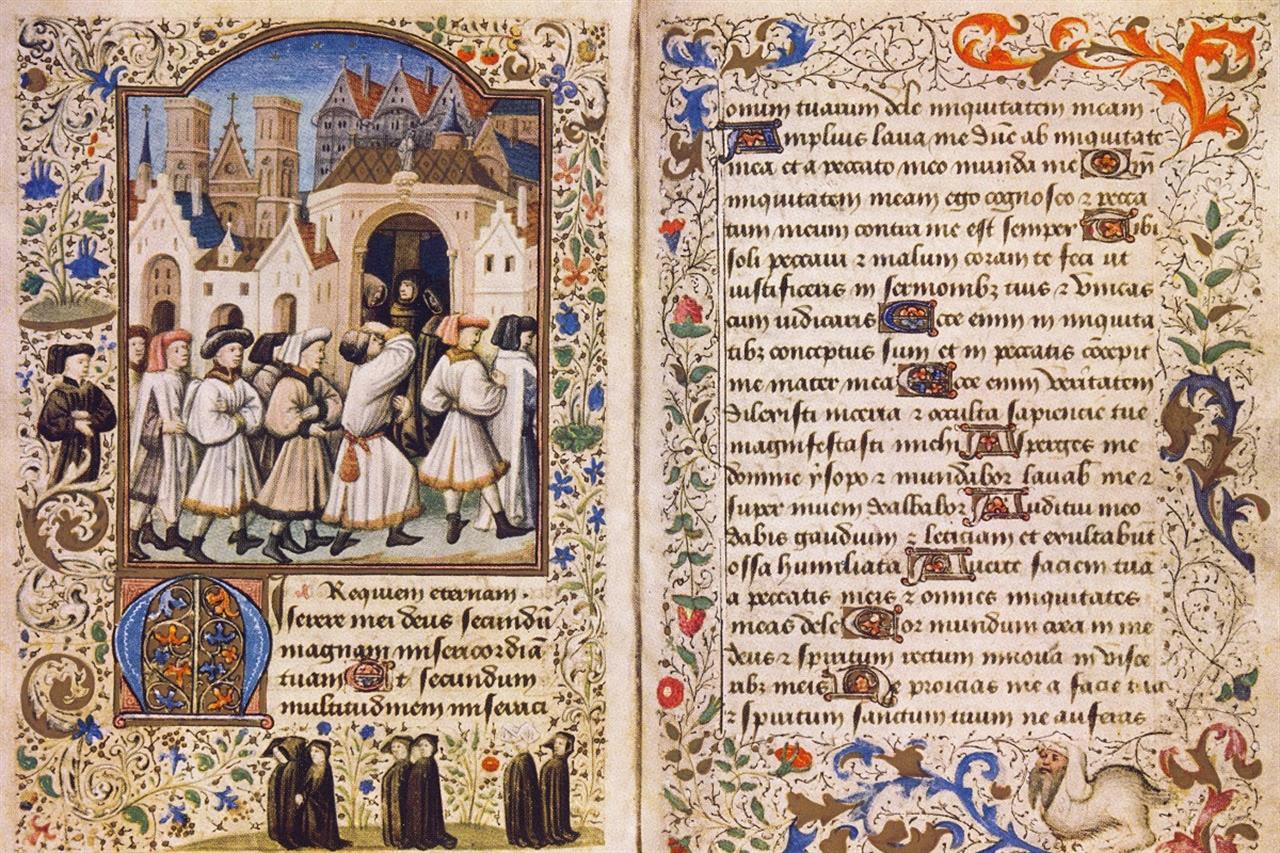 Requiem eternam.
Miserere mei deus secundū
magnam misericordiā
tuam Et secundum
multitudinem miseraci
onum tuarum dele iniquitatem meam
Amplius lava me ab iniquitate
mea et a peccato meo munda me Qm̄
iniquitatem meam ego cognosco ⁊ pecca
tum meum contra me est semper Tibi
soli peccavi ⁊ malum coram te feci ut
iustificeris in sermonibꝫ tuis ⁊ vincas
cum iudicaris Ecce enim in iniquita
tibꝫ conceptus sum et in peccatis cōcepit
me mater mea Ecce enim veritatem
dilexisti incerta ⁊ occulta sapiencie tue
magnifestasti michi Asperges me
domine ysopo ⁊ mundabor lavab me ⁊
super nivem dealbabor Auditui meo
dabis gaudium ⁊ leticiam et exultabūt
ossa humiliata Averte faciem tuā
a peccatis meis ⁊ omnes iniquitates
meas dele Cor mundum crea in me
deus ⁊ spiritum rectum innova in visce
ribꝫ meis Ne proicias me a facie tua
⁊ spiritum sanctum tuum ne auferas